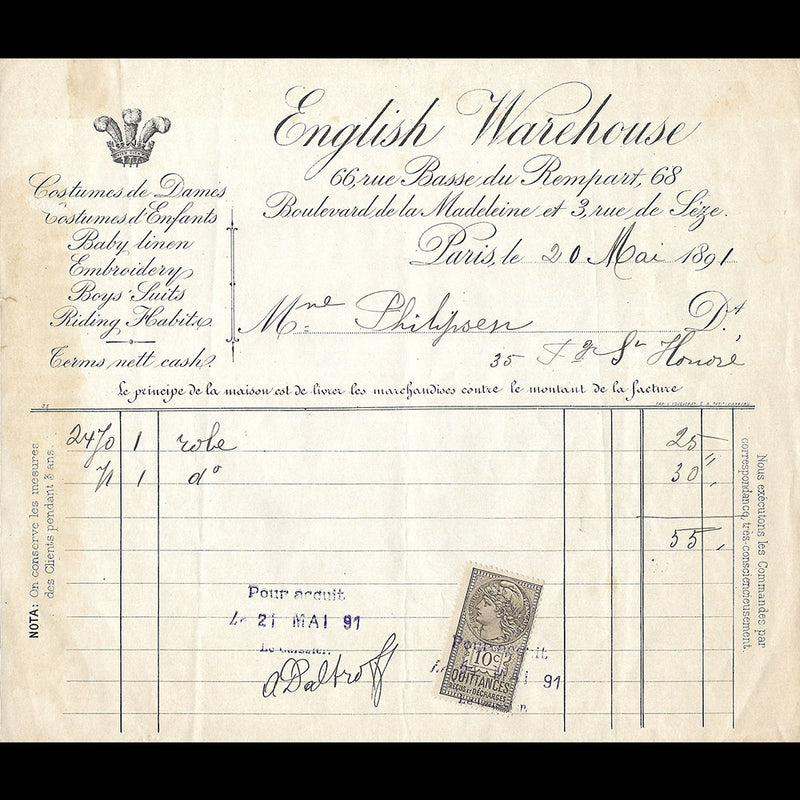 English Warehouse
66, rue Basse du Rempart, 68
Boulevard de la Madeleine et 3, rue de Sèze.
Paris, le 20 Mai 1891
Costumes de Dames
Costumes d'Enfants
Baby linen
Embroidery
Boys' Suits
Riding Habits.
Terms, nett cash.
Mme Philipsen Dt
35 Fg St Honoré
Le principe de la maison est de livrer les marchandises contre le montant de la facture
33
2470 1 robe 25
71 1 do 30 "
55
NOTA: On conserve les mesures
des Clients pendant 3 ans.
Nous exécutons les Commandes par
correspondance, très-consciencieusement.
Pour acquit
Le 21 MAI 91
Le Caissier.
Pour acquit
91
10c
QUITTANCES
REÇUS ET DÉCHARGES